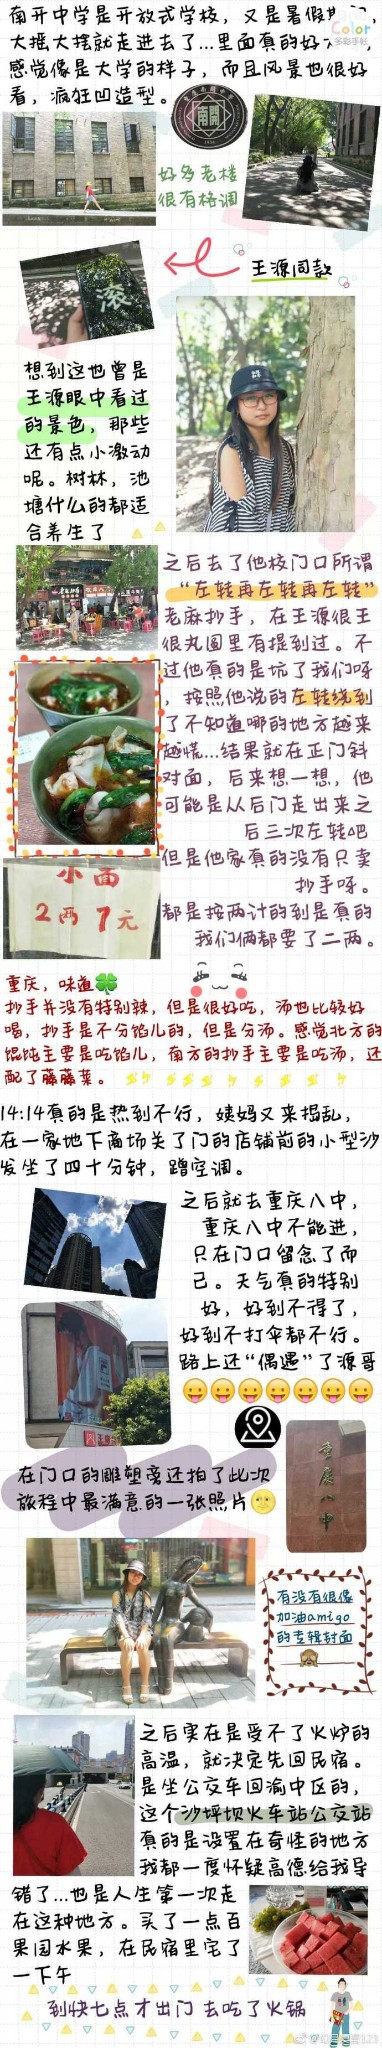 南开中学是开放式学校，又是暑假
大摇大摆就走进去了...里面真的好
Color
多彩手帐
感觉像是大学的样子，而且风景也很好
看，疯狂凹造型。
南開
1936
好多老楼
很有格调
王源同款
滚
想到这也曾是
王源眼中看过
的景色，那些
还有点小激动
呢。树林，池
塘什么的都适
合养生了
之后去了他校门口所谓
“左转再左转再左转”
老麻抄手，在王源很王
很丸圆里有提到过。不
过他真的是坑了我们呀
，按照他说的左转绕到
了不知道哪的地方越来
越慌...结果就在正门斜
对面，后来想一想，他
可能是从后门走出来之
后三次左转吧
但是他家真的没有只卖
抄手呀。
都是按两计的到是真的
我们俩都要了二两。
小面
2两 7元
重庆，味道🍀
抄手并没有特别辣，但是很好吃，汤也比较好
喝，抄手是不分馅儿的，但是分汤。感觉北方的
馄饨主要是吃馅儿，南方的抄手主要是吃汤，还
配了藤藤菜。
14:14真的是热到不行，姨妈又来捣乱，
在一家地下商场关了门的店铺前的小型沙
发坐了四十分钟，蹭空调。
之后就去重庆八中，
重庆八中不能进，
只在门口留念了而
已。天气真的特别
好，好到不得了，
好到不打伞都不行。
路上还“偶遇”了源哥
😛😛😛😛😛😛😛
重庆八中
在门口的雕塑旁还拍了此次
旅程中最满意的一张照片🌝
有没有很像
加油amigo
的专辑封面
🙈
之后实在是受不了火炉的
高温，就决定先回民宿。
是坐公交车回渝中区的，
这个沙坪坝火车站公交站
真的是设置在奇怪的地方
我都一度怀疑高德给我导
错了...也是人生第一次走
在这种地方。买了一点百
果园水果，在民宿里宅了
一下午
到快七点才出门 去吃了火锅